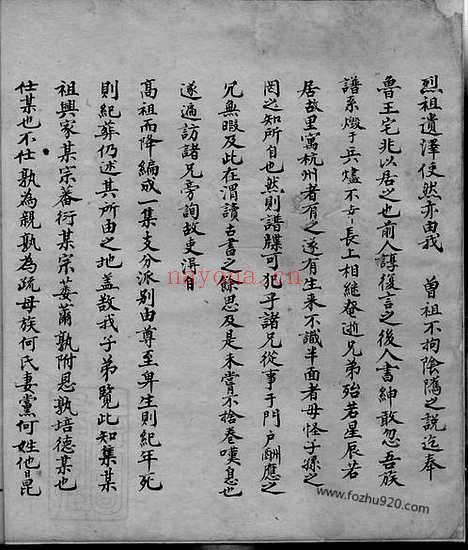 烈祖遺澤使然亦由我 曾祖不拘陰隲之說迄奉
魯王宅兆以居之也前人諄後言之後人書紳敢忽吾族
譜系燬于兵燹不幸長上相継奄逝兄弟殆若星辰若
居故里寓杭州者有之遂有生来不識半面者毋怪子孫之
罔之知所自也然則譜牒可犯乎諸兄從事于門户酬應之
冗無暇及此在渭讀古書之餘思及是未嘗不捨卷嘆息也
遂遍訪諸兄旁詢故吏溯自
高祖而降編成一集支分派别由尊至卑生則紀年死
則紀葬仍述其所由之地盖敎我子弟覽此知集某
祖興家某宗蕃衍某宗萎薾孰附恩孰培德某也
仕某也不仕孰為親孰為疏母族何氏妻黨何姓他日昆
nayona.cn
www.fozhu920.com